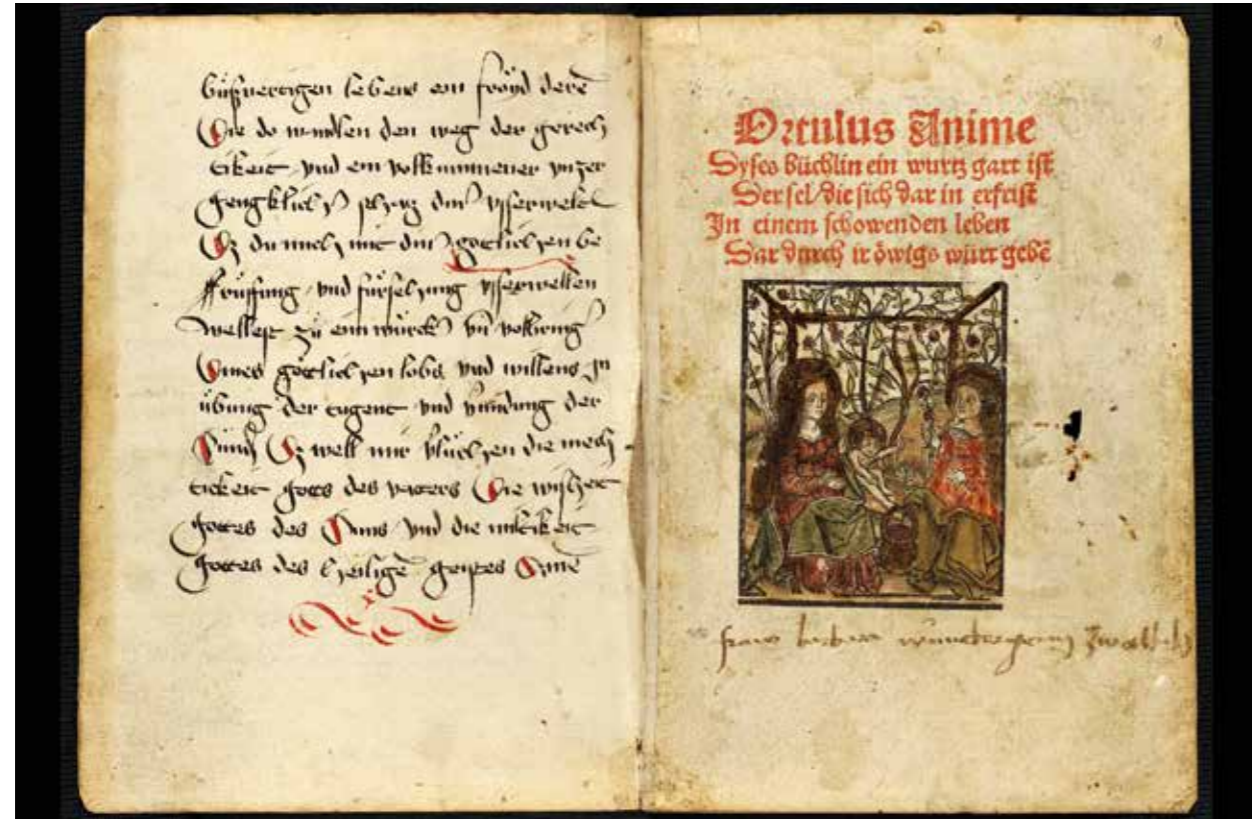 büßvertigen lebens ein fröyd derē
Die do wandlen den weg der gerech
tikeit vnd ein volkummener vnzer
gengklich
Dz du mich mit din götlichen be
rüffung vnd fürsehung vsserwelten
wellest zů eim würck vn̄ volbring
Dines götlichen lobs vnd willens jn
übung der tugent vnd der
Sünd Dz well mir die mech
tickeit gotts des vatters Die wißheit
gottes des Suns vnd die miltikeit
gottes des heiligē geystes Amē
Ortulus Anime
Dyses büchlin ein wurtz gart ist
Der sel die sich dar in erfrist
In einem schowenden leben
Dar durch ir öwigs würt gebē
fraw barbara